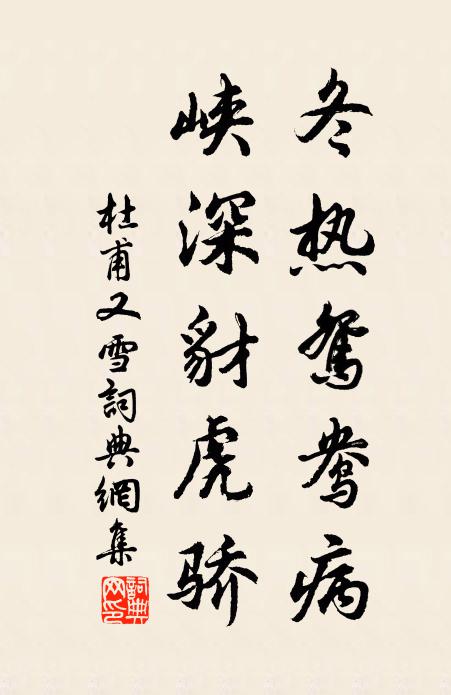 冬热鸳鸯病
峡深豺虎骄
杜甫又雪詞典網集
詞典网印